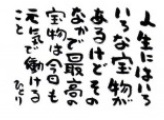 人生にはい
ろいろな宝物が
あるけどその
なかで最高の
宝物は今日も
元気で働ける
こと
ひとり